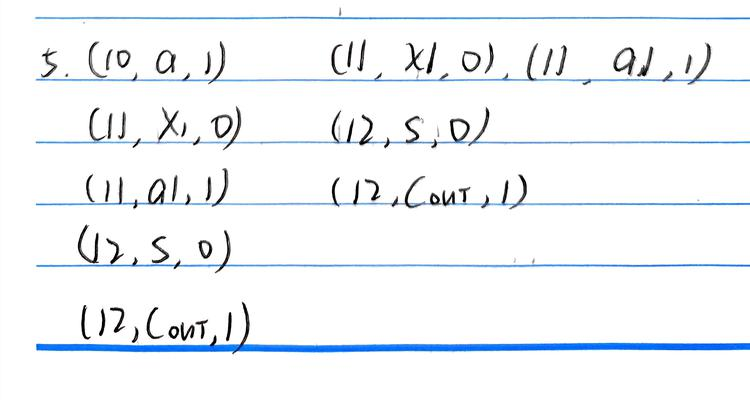 5. (10, a, 1) (11, X1, 0), (11, a1, 1)
(11, X1, 0) (12, S, 0)
(11, a1, 1) (12, Cout, 1)
(12, S, 0)
(12, Cout, 1)